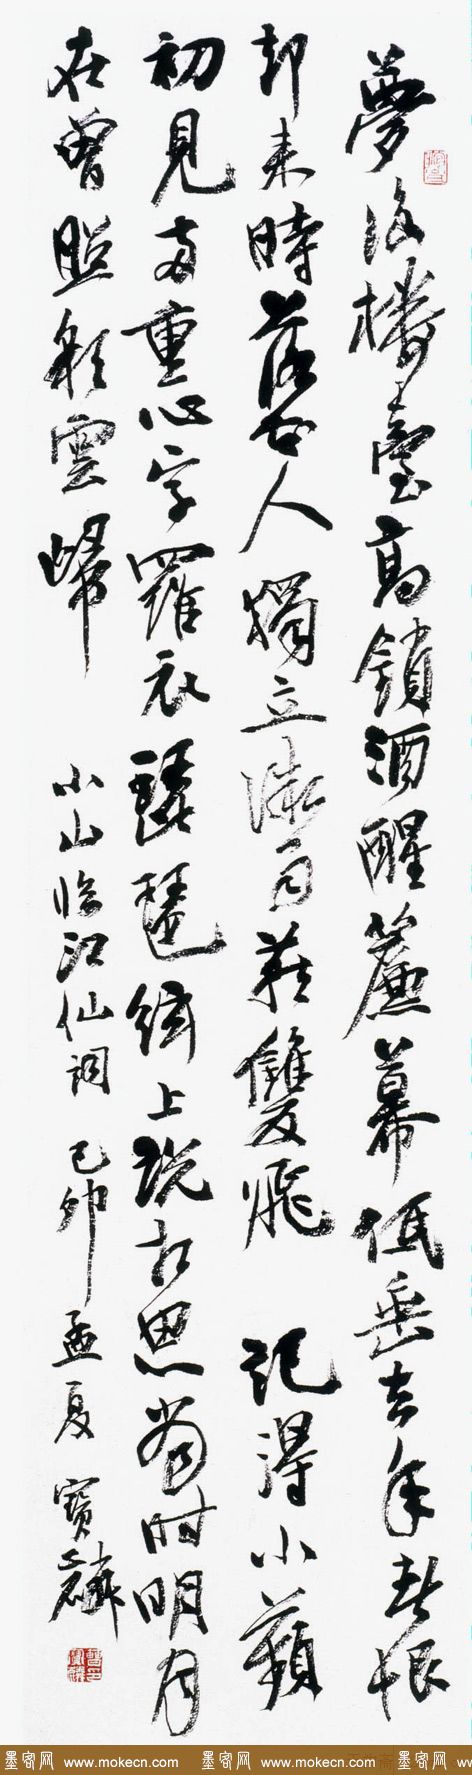 夢後樓臺高鎖酒醒簾幕低垂去年春恨
却来時落花人獨立微雨燕雙飛 記得小蘋
初見两重心字羅衣琵琶絃上说相思當时明月
在曾照彩雲歸 小山临江仙词 己卯孟夏 寶麟
墨客网 www.mokecn.com 墨客网 www.mokecn.com 墨客网 www.